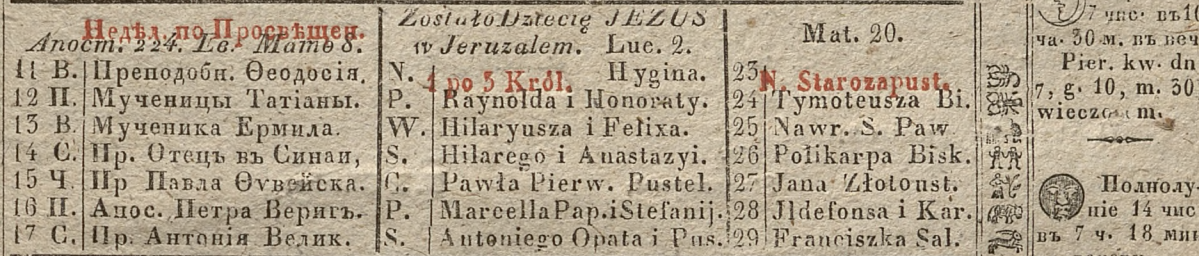 Недѣл. по Просвѣщен.
Апост. 224. Ев. Мате 8.
11 В. Преподобн. Ѳеодосія.
12 П. Мученицы Татіаны.
13 В. Мученика Ермила.
14 С. Пр. Отецъ въ Синаи,
15 Ч. Пр Павла Ѳѵвейска.
16 П. Апос. Петра Веригъ.
17 С. Пр. Антонія Велик.
Zostało Dziecię JEZUS
w Jeruzalem. Luc. 2.
N. 1 po 3 Król. Hygina.
P. Raynolda i Honoraty.
W. Hilaryusza i Felixa.
S. Hilarego i Anastazyi.
C. Pawła Pierw. Pustel.
P. Marcella Pap. i Stefanij.
S. Antoniego Opata i Pus.
Mat. 20.
23 N. Starozapust.
24 Tymoteusza Bi.
25 Nawr. S. Paw
26 Polikarpa Bisk.
27 Jana Złotoust.
28 Jldefonsa i Kar.
29 Franciszka Sal.
7 час. въ 10
ча. 30 м. въ веч
Pier. kw. dn
7, g. 10, m. 30
wieczo m.
Полнолу-
ніе 14 чис
въ 7 ч. 18 мин